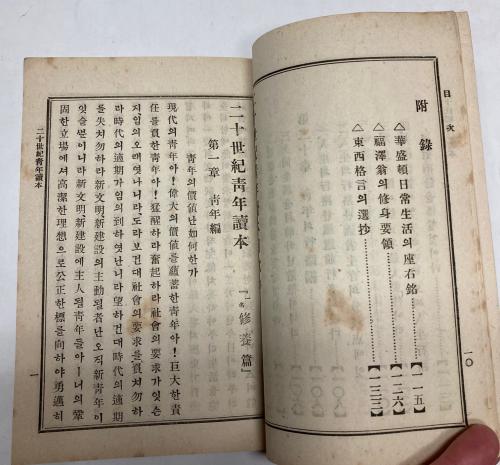 目次
附錄
△華盛頓日常生活의座右銘…………【一一五】
△福澤翁의修身要領…………【一二六】
△東西格言의選抄…………【一三三】
一〇
二十世紀靑年讀本 『一名修養篇』
第一章 靑年編
靑年의價値난如何한가
現代의靑年아！偉大의價値를蘊蓄한靑年아！巨大한責
任를負한靑年아！猛醒하라奮起하라社會의要求가잇슨
지임의오래엿나니라도라보건대社會의要求를負치勿하
라時代의適期가임의到하엿난니라望하건대時代의適期
를失치勿하라新文明新建設의主動될者난오직新靑年이
잇슬ᄲᅮᆫ이니라新文明新建設에主人될靑年들아ㅡ너의鞏
固한立場에셔高潔한理想으로公正한標를向하야勇進히
二十世紀靑年讀本
一